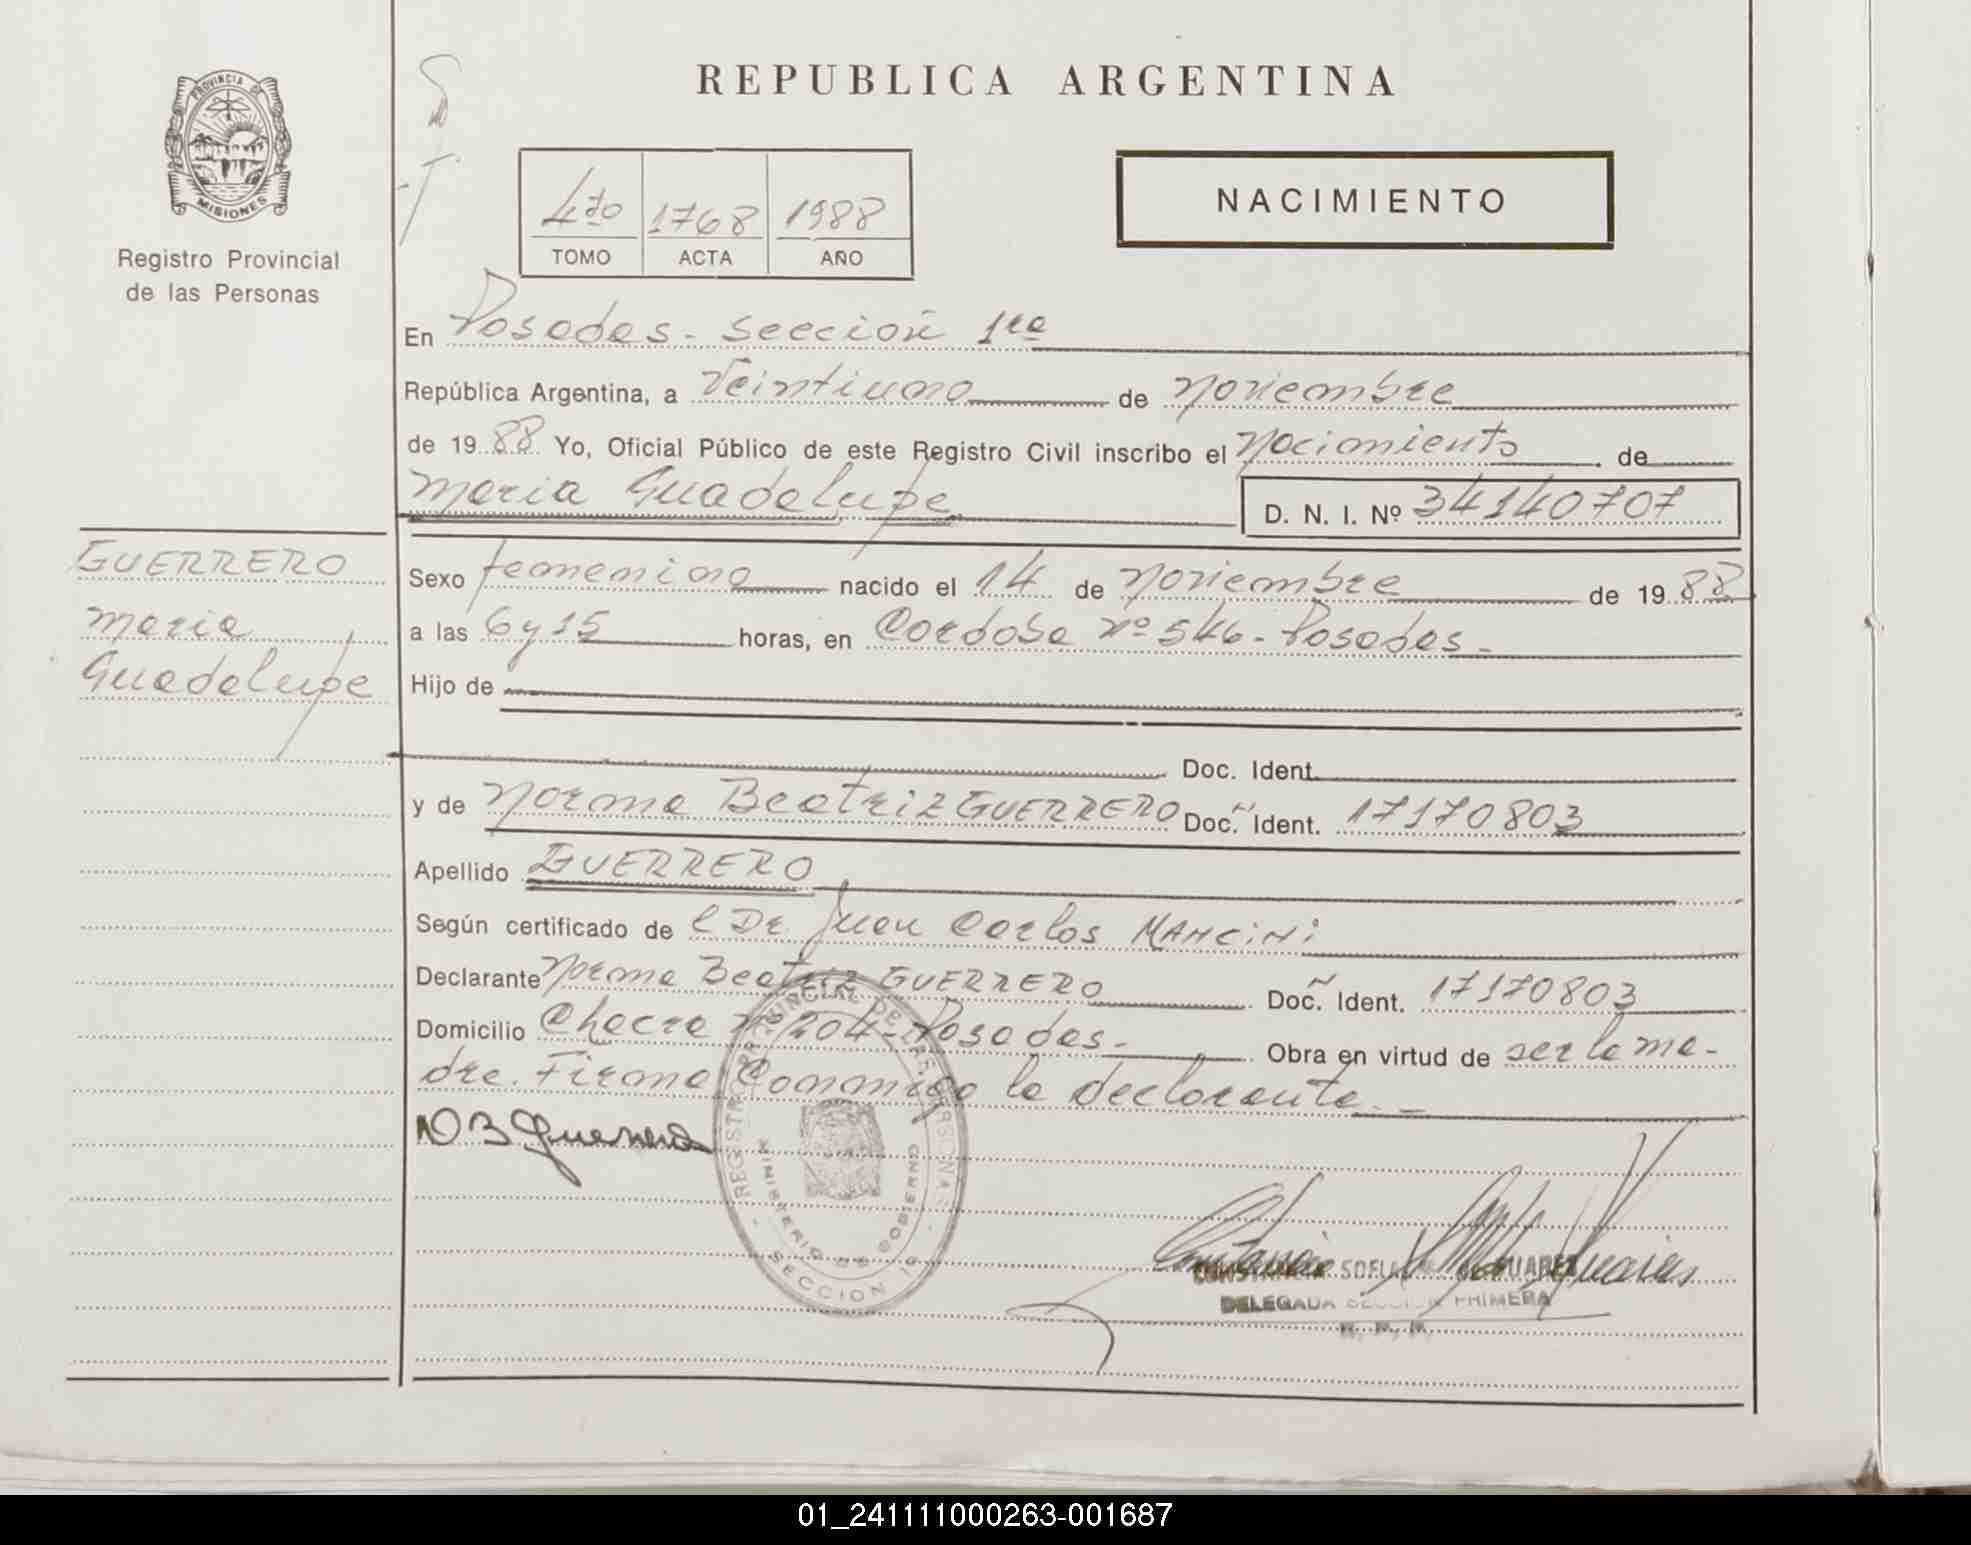 REPUBLICA ARGENTINA
PROVINCIA DE
MISIONES
Registro Provincial
de las Personas
4to 1768 1988
TOMO ACTA AÑO
NACIMIENTO
En Posadas - Sección 1ra
República Argentina, a Veintiuno de Noviembre
de 1988 Yo, Oficial Público de este Registro Civil inscribo el Nacimiento de
Maria Guadalupe D. N. I. Nº 34140707
GUERRERO
Maria
Guadalupe
Sexo femenino nacido el 14 de Noviembre de 1988
a las 6 y 15 horas, en Cordoba Nº 546 - Posadas -
Hijo de
Doc. Ident.
y de Norma Beatriz GUERRERO Doc. Ident. 17170803
Apellido GUERRERO
Según certificado de l Dr Juan Carlos MANCiNi
Declarante Norma Beatriz GUERRERO Doc. Ident. 17170803
Domicilio Chacra Nº 204 - Posadas - Obra en virtud de ser la ma-
dre. Firma Conmigo la declarante. -
N B Guerrero
REGISTRO PROVINCIAL DE LAS PERSONAS
MINISTERIO DE GOBIERNO
SECCION 1ª
CONSTANCIA SOFIA JUAREZ
DELEGADA SECCION PRIMERA
01_241111000263-001687